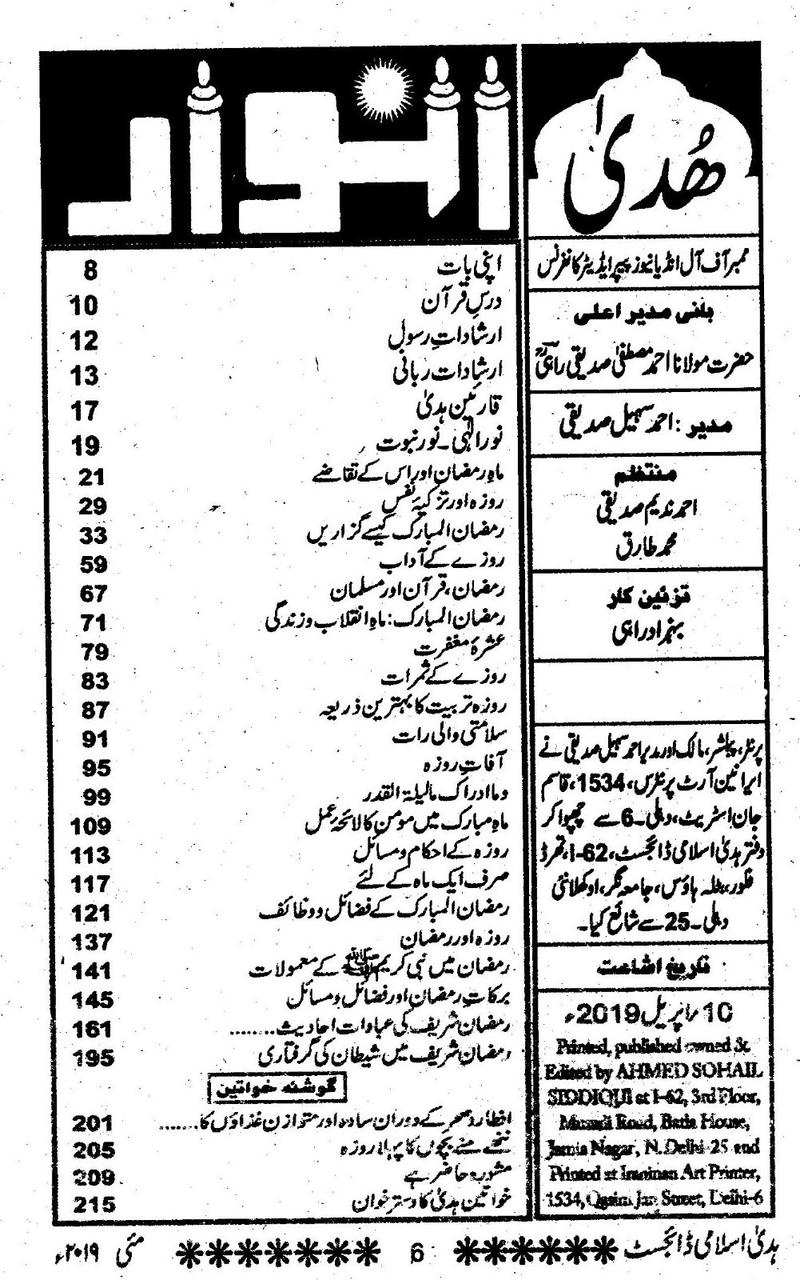 ھُدیٰ
ممبر آف آل انڈیا نیوز پیپر ایڈیٹر کانفرنس
بانی مدیر اعلی
حضرت مولانا احمد مصطفیٰ صدیقی راہیؒ
مدیر : احمد سہیل صدیقی
منتظم
احمد ندیم صدیقی
محمد طارق
تزئین کار
بہنر اور اہی
پرنٹر، پبلشر، مالک اور مدیر احمد سہیل صدیقی نے
ایرانین آرٹ پرنٹرس، 1534، قاسم
جان اسٹریٹ، دہلی۔6 سے چھپوا کر
دفتر ہدیٰ اسلامی ڈائجسٹ، I-62، تھرڈ
فلور، بٹلہ ہاؤس، جامعہ نگر، اوکھلا نئی
دہلی۔25 سے شائع کیا۔
تاریخ اشاعت
10/اپریل 2019ء
Printed, published owned &
Edited by AHMED SOHAIL
SIDDIQUI at I-62, 3rd Floor,
Muradi Road, Batla House,
Jamia Nagar, N.Delhi-25 and
Printed at Iraninan Art Printer,
1534, Qasim Jan Street, Delhi-6
انوار
اپنی بات 8
درسِ قرآن 10
ارشاداتِ رسول 12
ارشادات ربانی 13
قارئین ہدیٰ 17
نور الٰہی۔نور نبوت 19
ماہِ رمضان اور اس کے تقاضے 21
روزہ اور تزکیۂ نفس 29
رمضان المبارک کیسے گزاریں 33
روزے کے آداب 59
رمضان، قرآن اور مسلمان 67
رمضان المبارک: ماہِ انقلاب و زندگی 71
عشرۂ مغفرت 79
روزے کے ثمرات 83
روزہ تربیت کا بہترین ذریعہ 87
سلامتی والی رات 91
آفاتِ روزہ 95
وما ادراک ما لیلۃ القدر 99
ماہِ مبارک میں مومن کا لائحۂ عمل 109
روزہ کے احکام و مسائل 113
صرف ایک ماہ کے لئے 117
رمضان المبارک کے فضائل و وظائف 121
روزہ اور رمضان 137
رمضان میں نبی کریم ﷺ کے معمولات 141
برکاتِ رمضان اور فضائل و مسائل 145
رمضان شریف کی عبادات احادیث........ 161
رمضان شریف میں شیطان کی گرفتاری 195
گوشۂ خواتین
افطار و سحر کے دوران سادہ اور متوازن غذاؤں کا....... 201
ننھے منے بچوں کا پہلا روزہ 205
مشورہ حاضر ہے 209
خواتین ہدیٰ کا دسترخوان 215
ہدیٰ اسلامی ڈائجسٹ ****** 6 ******* مئی ۲۰۱۹ء